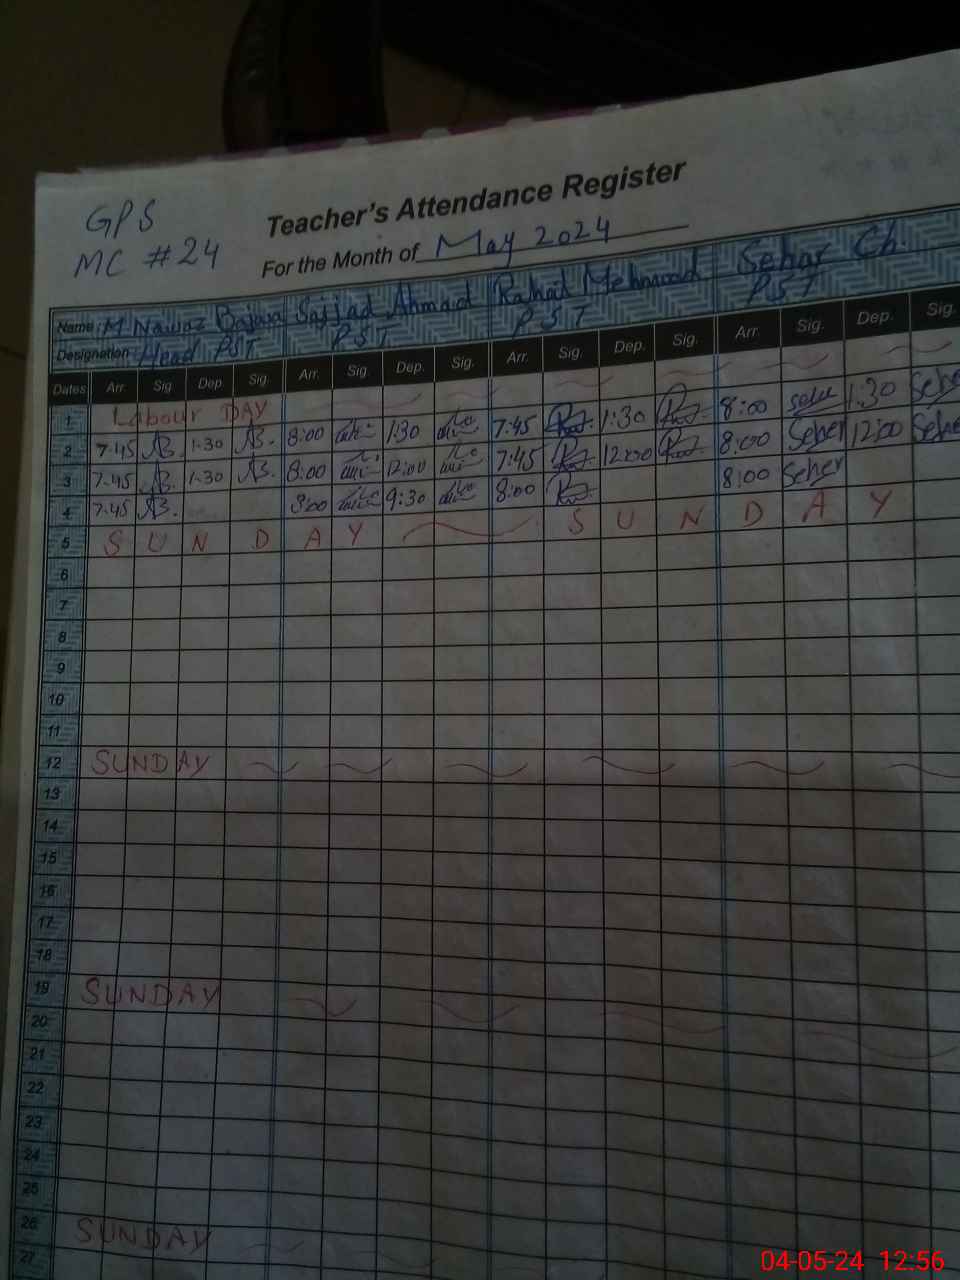 GPS
MC #24
Teacher's Attendance Register
For the Month of May 2024
Name: M Nawaz Bajwa Sajjad Ahmad Rahat Mehmood Sehar Ch.
Designation Head PST PST PST PST
Dates Arr. Sig. Dep. Sig. Arr. Sig. Dep. Sig. Arr. Sig. Dep. Sig. Arr. Sig. Dep. Sig.
1 Labour DAY
2 7:45 1:30 8:00 1:30 7:45 1:30 8:00 Seher 1:30 Seher
3 7:45 1:30 8:00 12:00 7:45 12:00 8:00 Seher 12:00 Seher
4 7:45 8:00 9:30 8:00 8:00 Seher
5 SUNDAY SUNDAY
6
7
8
9
10
11
12 SUNDAY
13
14
15
16
17
18
19 SUNDAY
20
21
22
23
24
25
26 SUNDAY
27
04-05-24 12:56